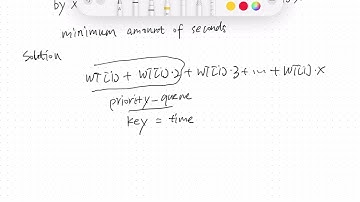 by x
minimum amount of seconds
Solution
WT[i] + WT[i]·2 + WT[i]·3 + ... + WT[i]·x
priority-queue
key = time